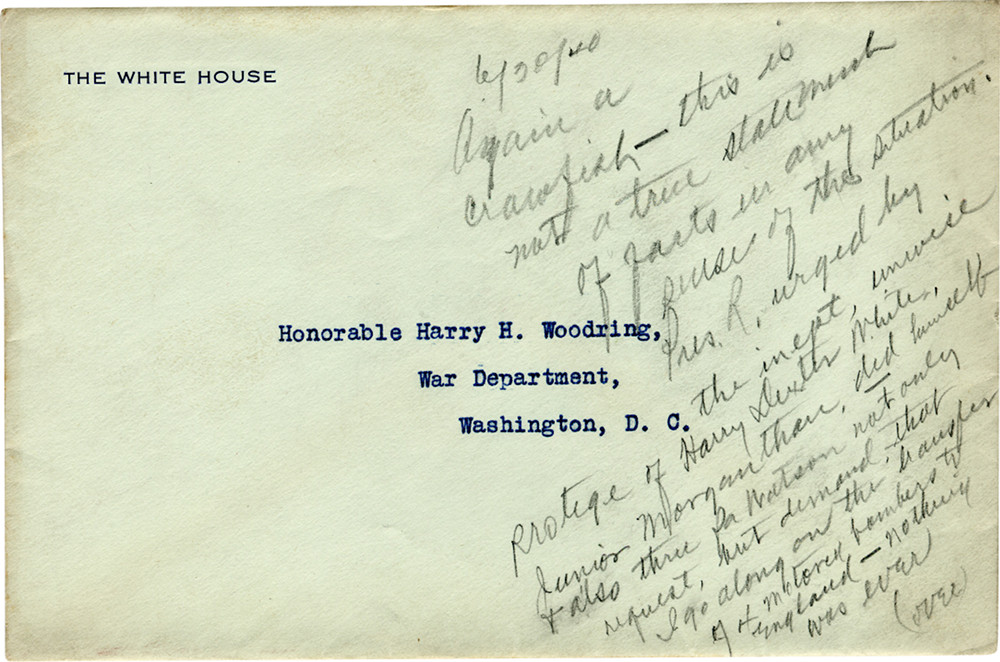 THE WHITE HOUSE
6/30/40
Again a
crawfish — this is
not a true statement
of facts in any
sense of the situation.
Pres. R, urged by
the inept, unwise
Protege of Harry Dexter White,
Junior Morganthau, did himself
& also thru Pa Watson not only
request, but demand, that
I go along on the transfer
of 4 motored bombers to
England — nothing
was ever
(over)
Honorable Harry H. Woodring,
War Department,
Washington, D. C.